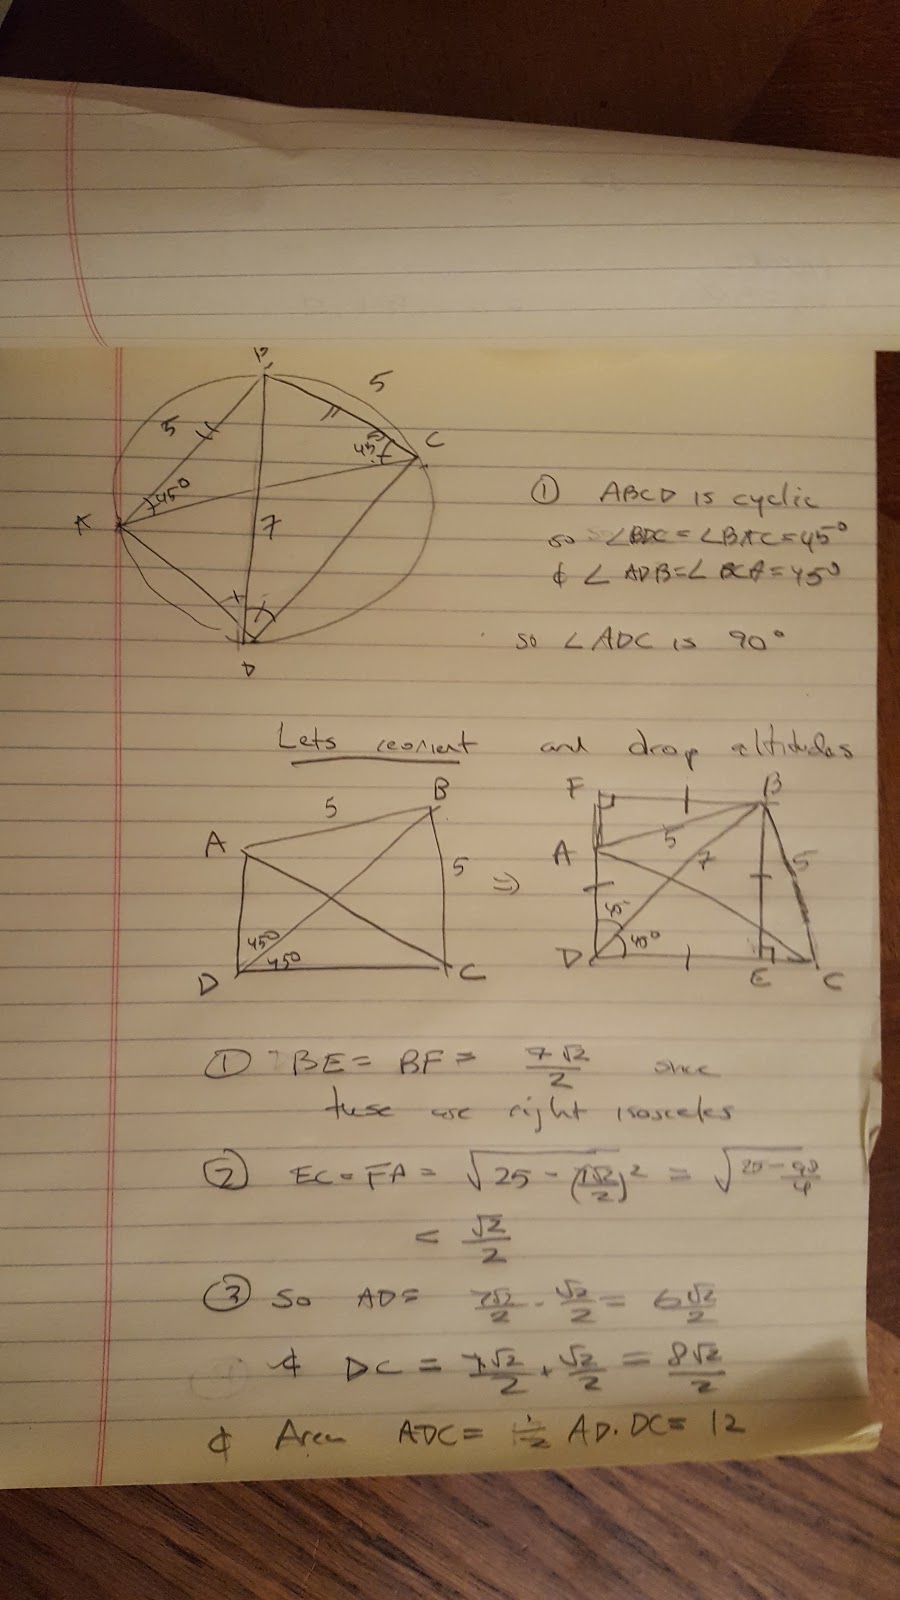 B
5
5
C
45°
45°
A
7
D
① ABCD is cyclic
so ∠BDC = ∠BAC = 45°
& ∠ADB = ∠BCA = 45°
so ∠ADC is 90°
Lets reorient and drop altitudes
B
5
A
5
45°
45°
D
C
⇒
F
B
A
5
7
5
45°
D
E
C
① BE = BF = 7√2/2 since
these are right isosceles
② EC = FA = √(25 - (7√2/2)²) = √(25 - 98/4)
= √2/2
③ So AD = 7√2/2 - √2/2 = 6√2/2
& DC = 7√2/2 + √2/2 = 8√2/2
& Area ADC = 1/2 AD.DC = 12